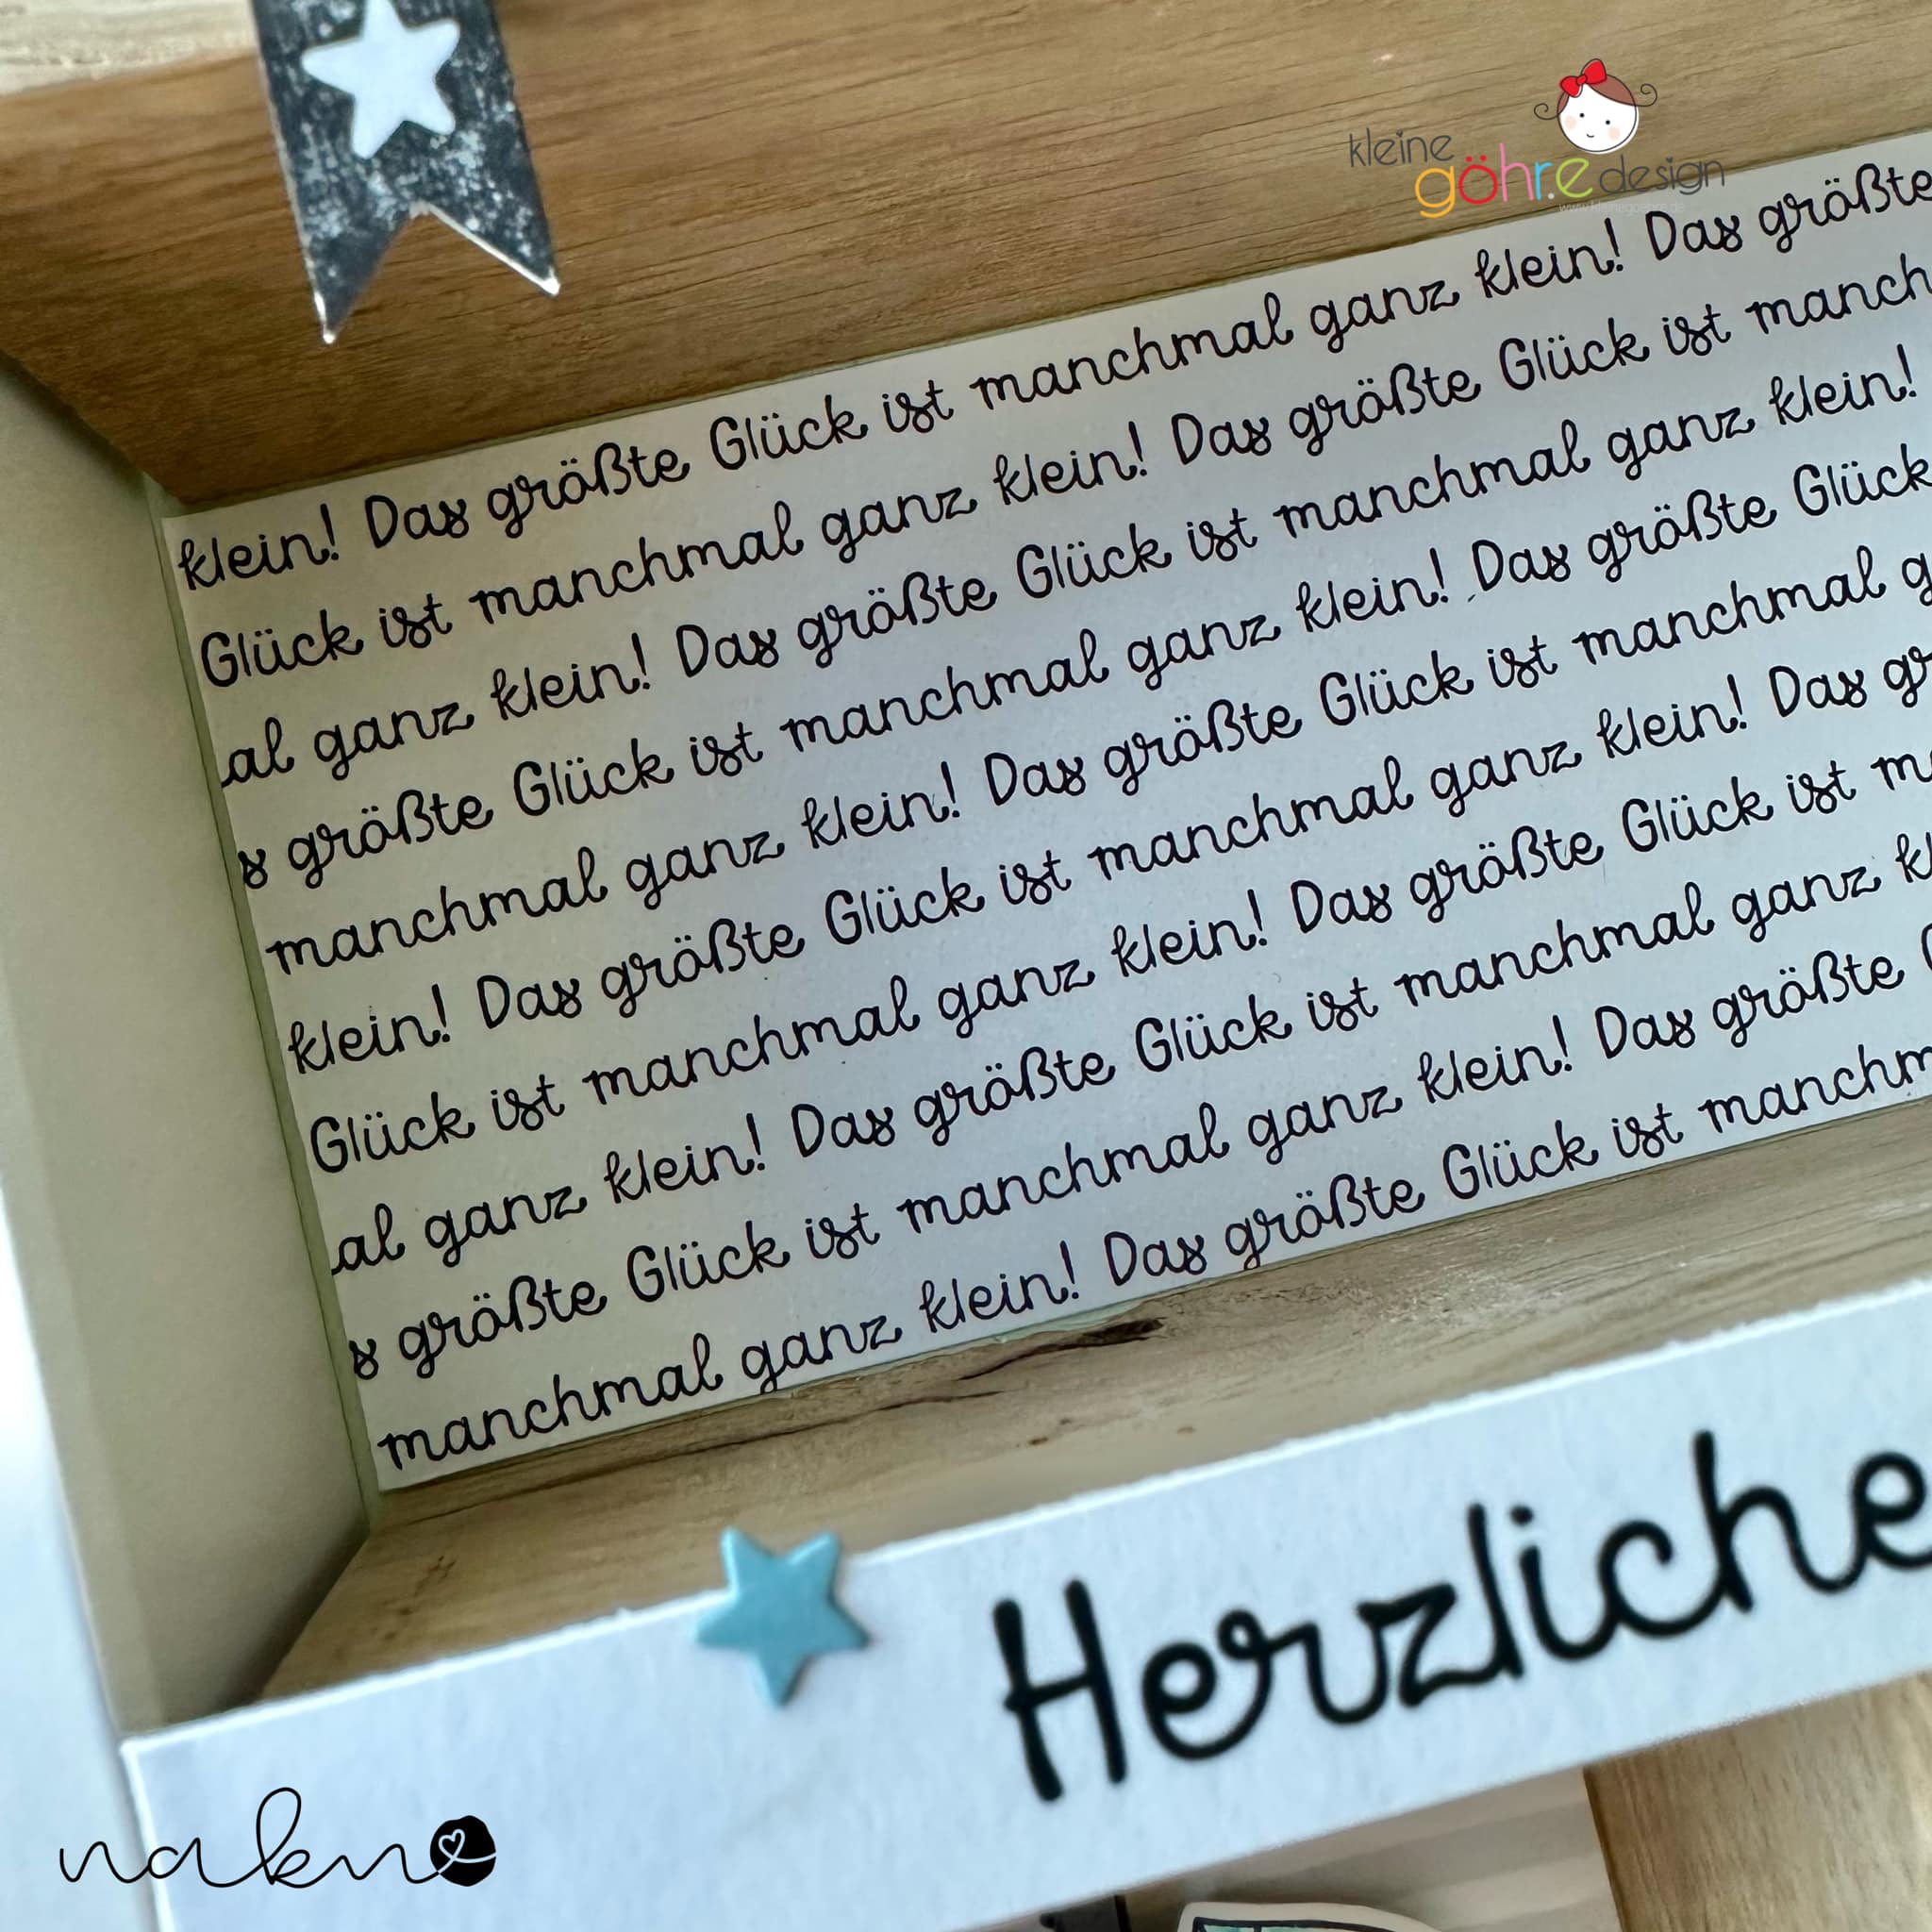 kleine
göhre design
klein! Das größte Glück ist manchmal ganz klein! Das größte
Glück ist manchmal ganz klein! Das größte Glück ist manch
al ganz klein! Das größte Glück ist manchmal ganz klein!
s größte Glück ist manchmal ganz klein! Das größte Glück
manchmal ganz klein! Das größte Glück ist manchmal g
klein! Das größte Glück ist manchmal ganz klein! Das gr
Glück ist manchmal ganz klein! Das größte Glück ist m
al ganz klein! Das größte Glück ist manchmal ganz kl
s größte Glück ist manchmal ganz klein! Das größte G
manchmal ganz klein! Das größte Glück ist manchm
Herzliche
nakno